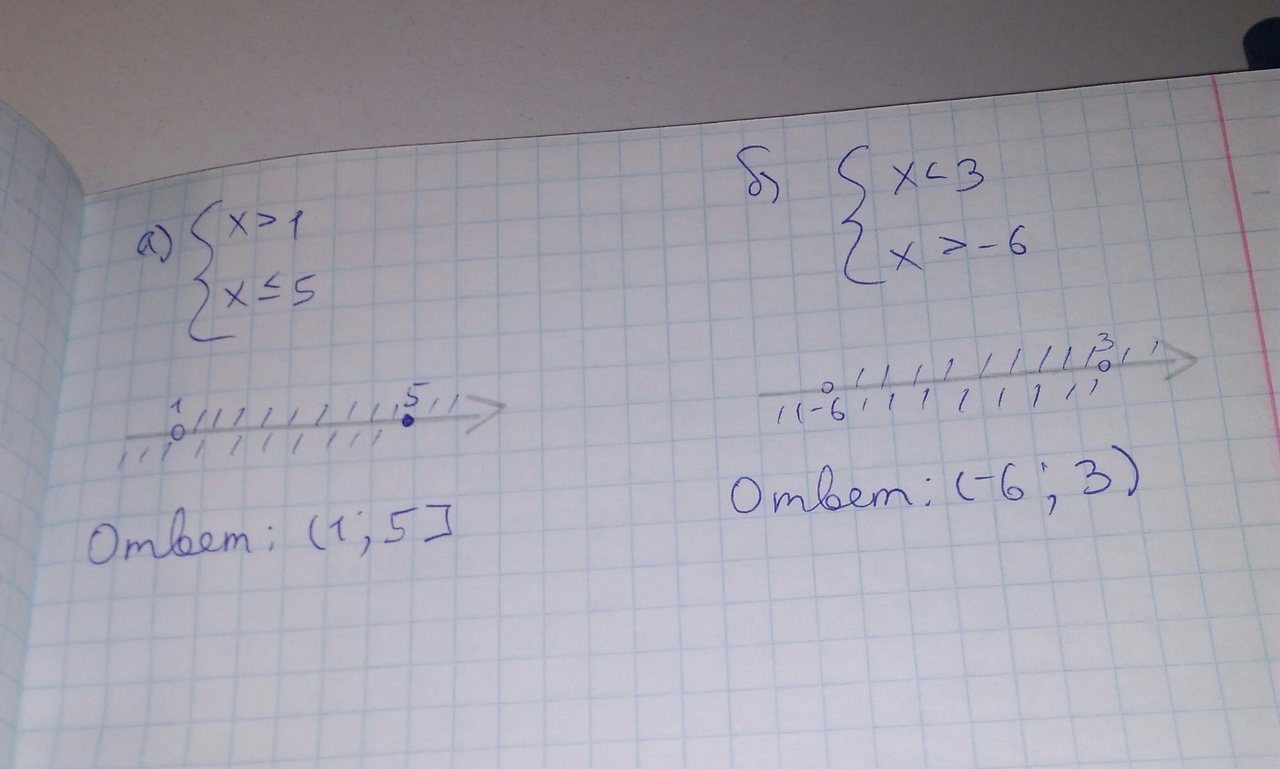 а) { x > 1
x ≤ 5
1 5
Ответ: (1; 5]
б) { x < 3
x > -6
-6 3
Ответ: (-6; 3)